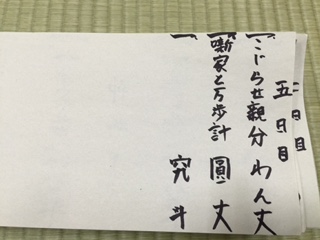 五日目
一、こじらせ親分 わん丈
一、噺家と万歩計 圓丈
一、 究斗